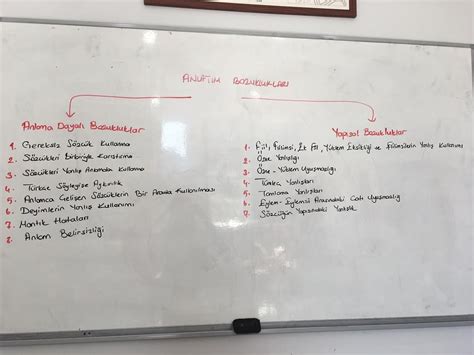 ANLATIM BOZUKLUKLARI
Anlama Dayalı Bozukluklar
1. Gereksiz Sözcük Kullanma
2. Sözcükleri Birbiriyle Karıştırma
3. Sözcükleri Yanlış Anlamda Kullanma
4. Türkçe Söyleyişe Aykırılık
5. Anlamca Çelişen Sözcüklerin Bir Arada Kullanılması
6. Deyimlerin Yanlış Kullanımı
7. Mantık Hataları
8. Anlam Belirsizliği
Yapısal Bozukluklar
1. Fiil, Fiilimsi, Ek Fiil, Yüklem Eksikliği ve Fiilimsilerin Yanlış Kullanımı
2. Özne Yanlışlığı
3. Özne - Yüklem Uyuşmazlığı
4. Tümleç Yanlışları
5. Tamlama Yanlışları
6. Eylem - Eylemsi Arasındaki Çatı Uyuşmazlığı
7. Sözcüğün Yapısındaki Yanlışlık